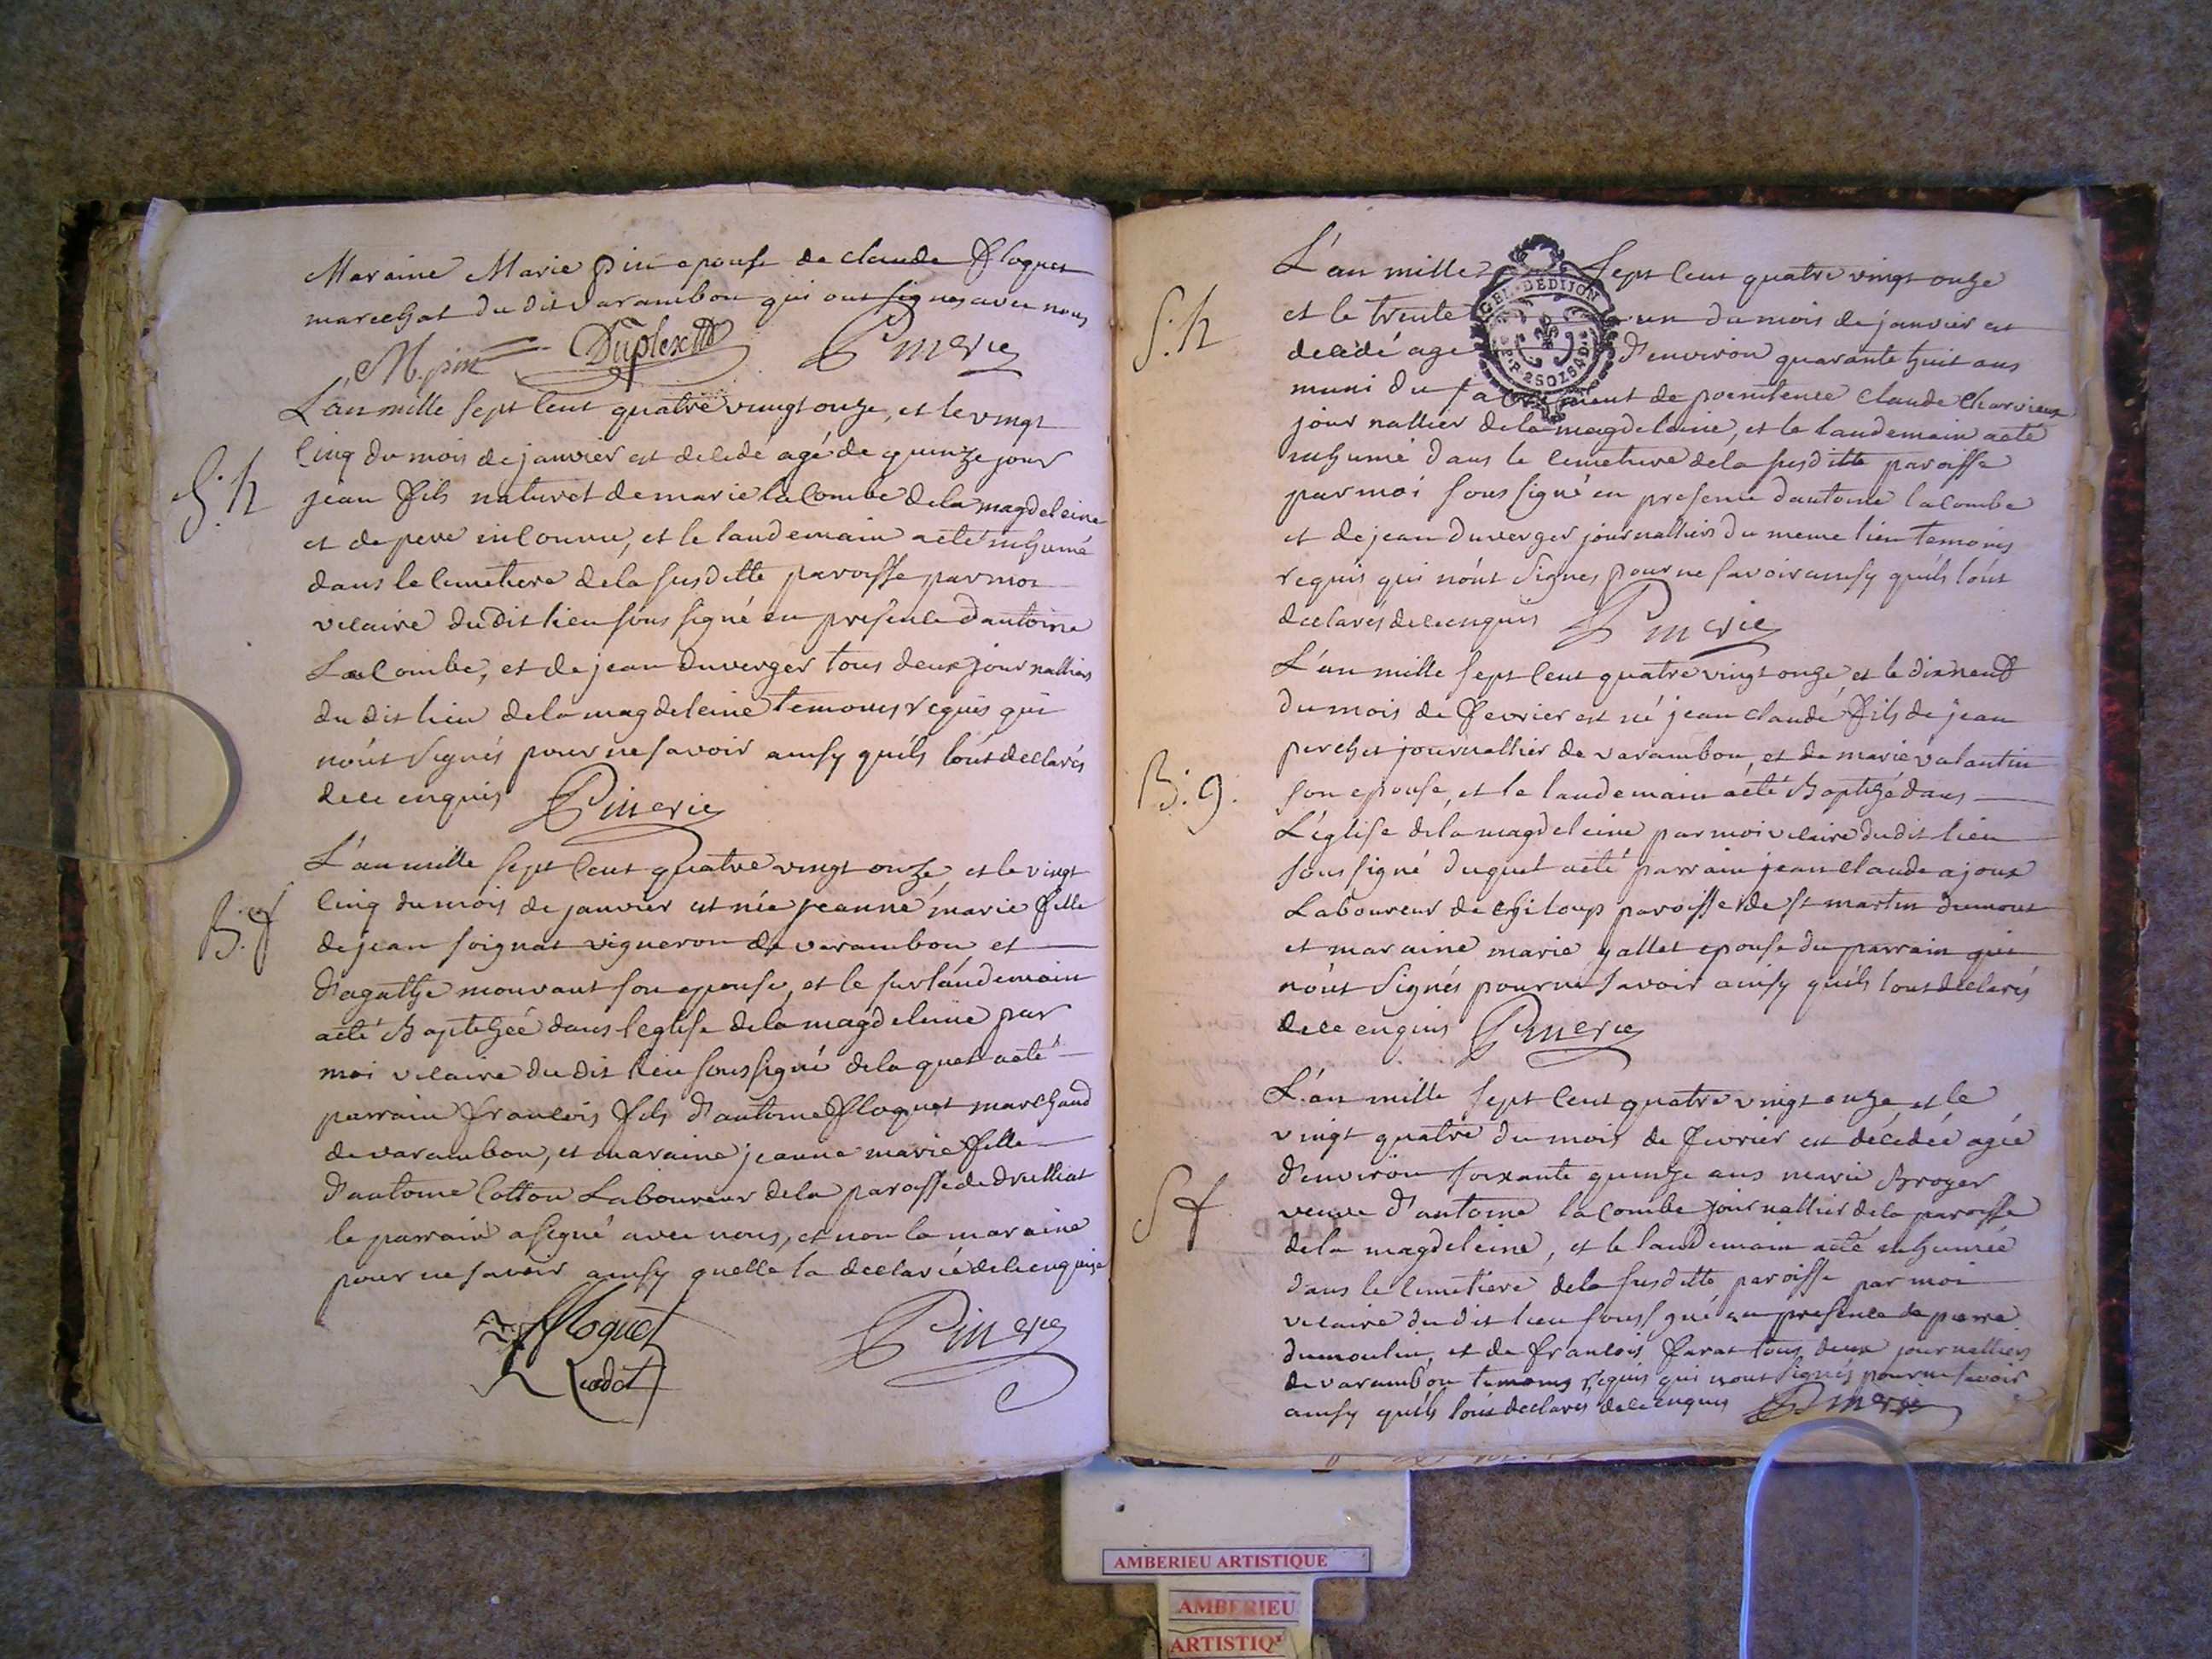 Maraine Marie pin epouse de claude floquet
marechat du dit varambon qui ont signes avec nous
M. pin Duplex Pinerie
L'an mille sept cent quatre vingt onze, et le vingt
S. h cinq du mois de janvier est decedé agé de quinze jour
jean fils naturel de marie lacombe de la magdeleine
et de pere inconnu, et le landemain a eté inhumé
dans le cimetiere de la susditte paroisse par moi
vicaire du dit lieu sous signé en presence d'antoine
Lacombe, et de jean duverger tous deux journalliers
du dit lieu de la magdeleine temoins requis qui
n'ont signés pour ne savoir ainsy qu'ils l'ont declarés
de ce enquis Pinerie
L'an mille sept cent quatre vingt onze et le vingt
B. f cinq du mois de janvier est née jeanne marie fille
de jean soignat vigneron de varambon, et
d'agathe mouvant son epouse, et le surlandemain
a eté Baptizéé dans l'eglise de la magdeleine par
moi vicaire du dit lieu soussigné de la quel a eté
parrain francois fils d'antoine floquet marchand
de varambon, et maraine jeanne marie fille
d'antoine Cotton Laboureur de la paroisse de druilliat
le parrain a signé avec nous, et non la maraine
pour ne savoir ainsy quelle la declarée de ce enquise
floquet Pinerie
L'an mille sept cent quatre vingt onze
S. h et le trente un du mois de janvier est
decedé age d'environ quarante huit ans
muni du sacrement de poenitence claude Charvieux
journallier de la magdeleine, et le landemain a eté
inhumé dans le cimetiere de la susditte paroisse
par moi sous signé en presence d'antoine lacombe
et de jean duverger journalliers du meme lieu temoins
requis qui n'ont signes pour ne savoir ainsy qu'ils l'ont
declarés de ce enquis Pinerie
L'an mille sept cent quatre vingt onze et le dix neuf
du mois de fevrier est né jean claude fils de jean
perchet journallier de varambon, et de marie valantin
B. g. son epouse, et le landemain a eté Baptizé dans
L'église de la magdeleine par moi vicaire du dit lieu
sous signé duquel a eté parrain jean claude ajoux
Laboureur de chiloup paroisse de st martin dumont
et maraine marie gallet epouse du parrain qui
n'ont signés pour ne savoir ainsy qu'ils l'ont declarés
de ce enquis Pinerie
L'an mille sept cent quatre vingt onze et le
vingt quatre du mois de fevrier est décedéé agée
S f d'environ soixante quinze ans marie Broyer
veuve d'antoine lacombe journallier de la paroisse
de la magdeleine, et le landemain a eté inhumée
dans le cimetiere de la susditte paroisse par moi
vicaire du dit lieu soussigné en presence de pierre
dumoulin, et de francois farat tous deux journalliers
de varambon temoins requis qui n'ont signés pour ne savoir
ainsy qu'ils l'ont declarés de ce enquis Pinerie
AMBERIEU ARTISTIQUE
AMBERIEU